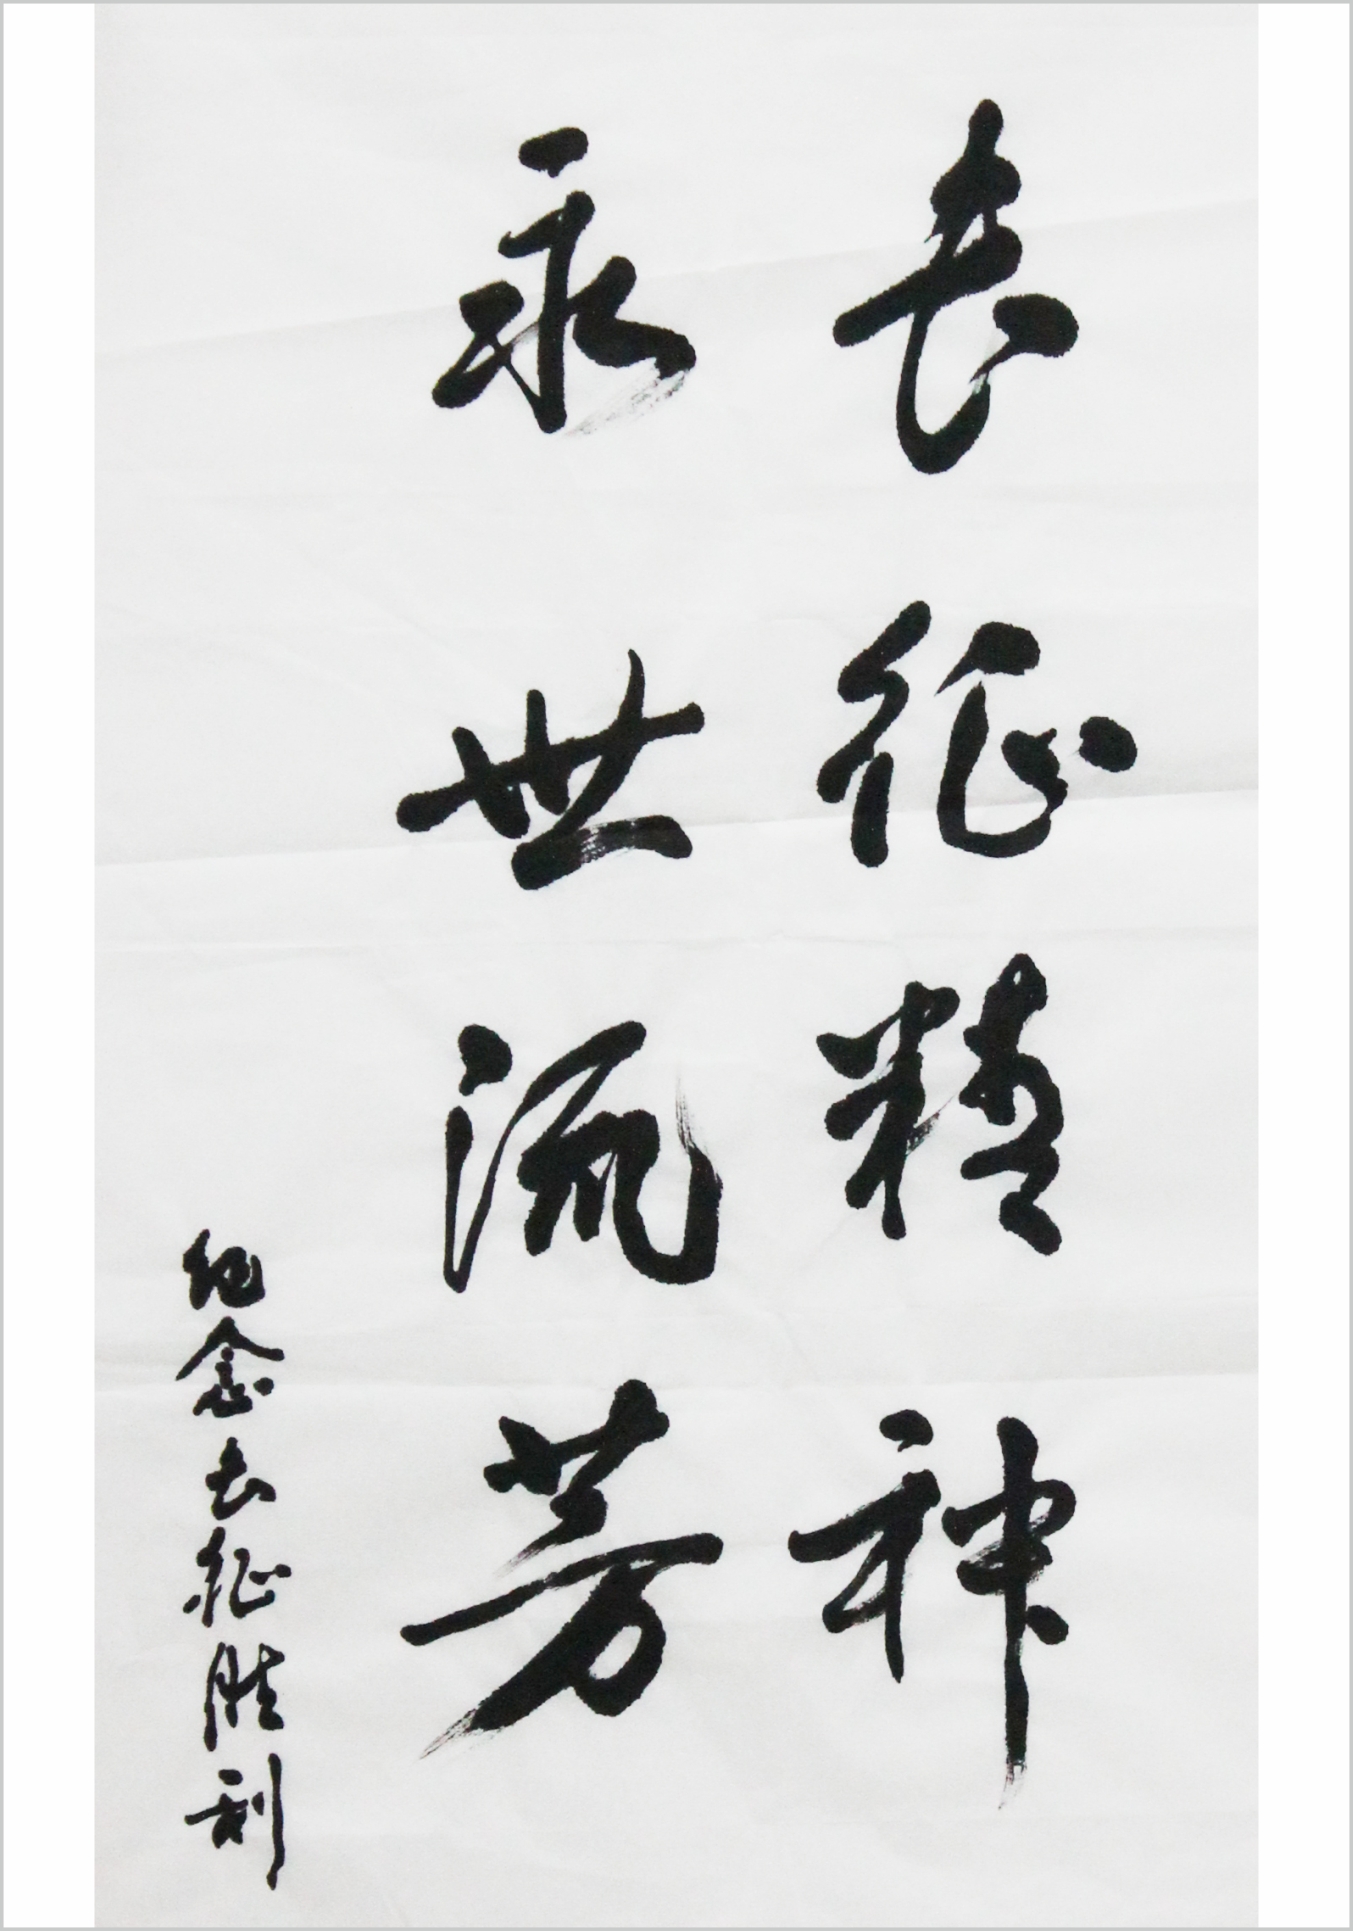 长征精神
永世流芳
纪念长征胜利